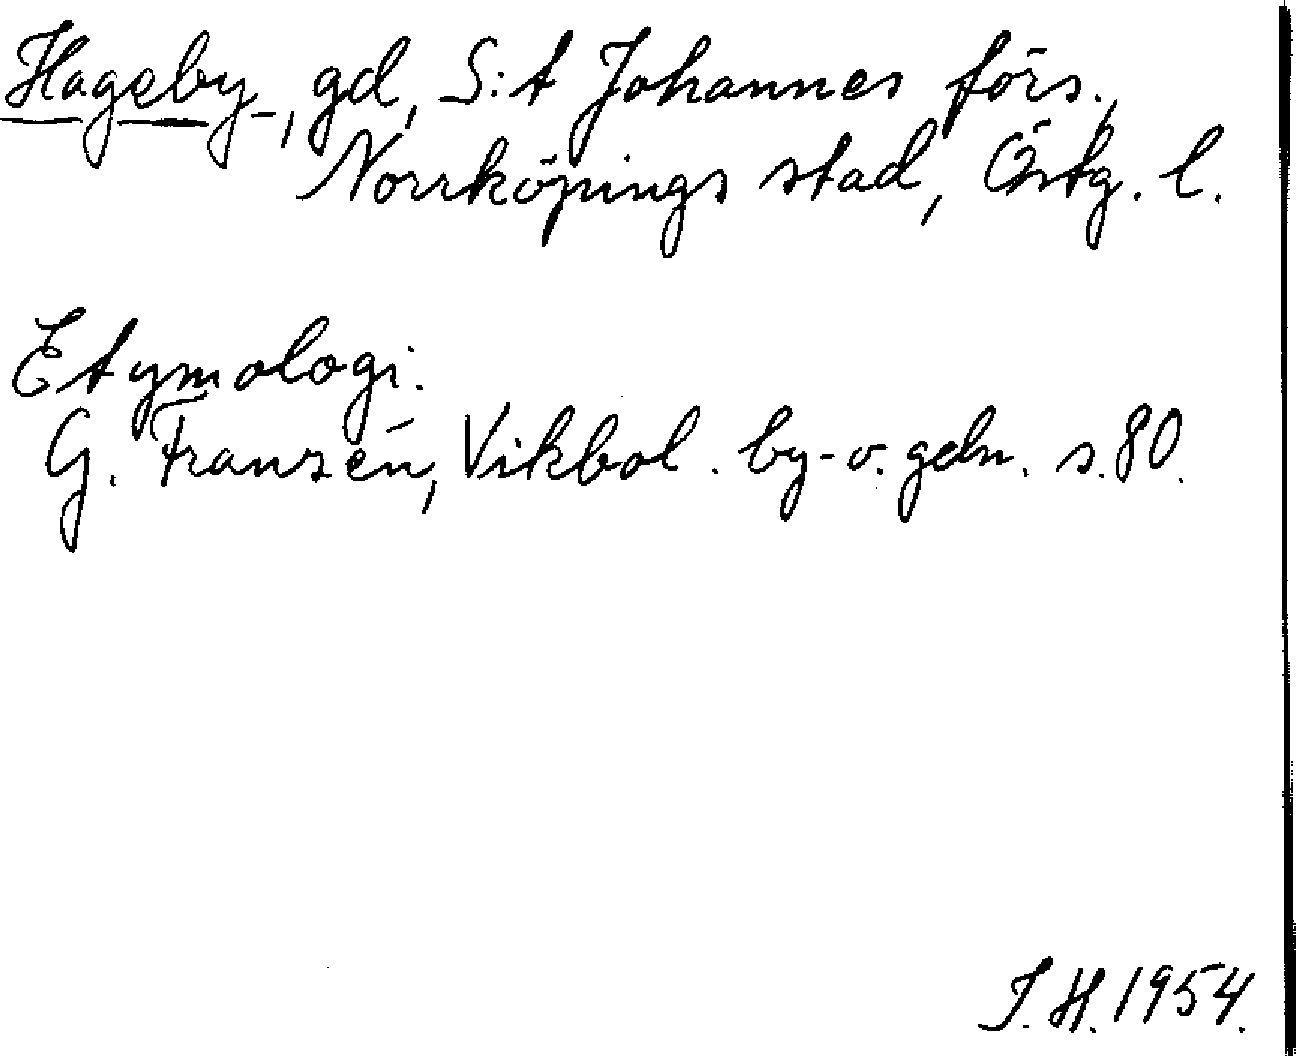 Hageby, gd, S:t Johannes förs.,
Norrköpings stad, Östg. l.
Etymologi.
G. Franzén, Vikbol. by- o. gdn. s. 80.
J. H. 1954.